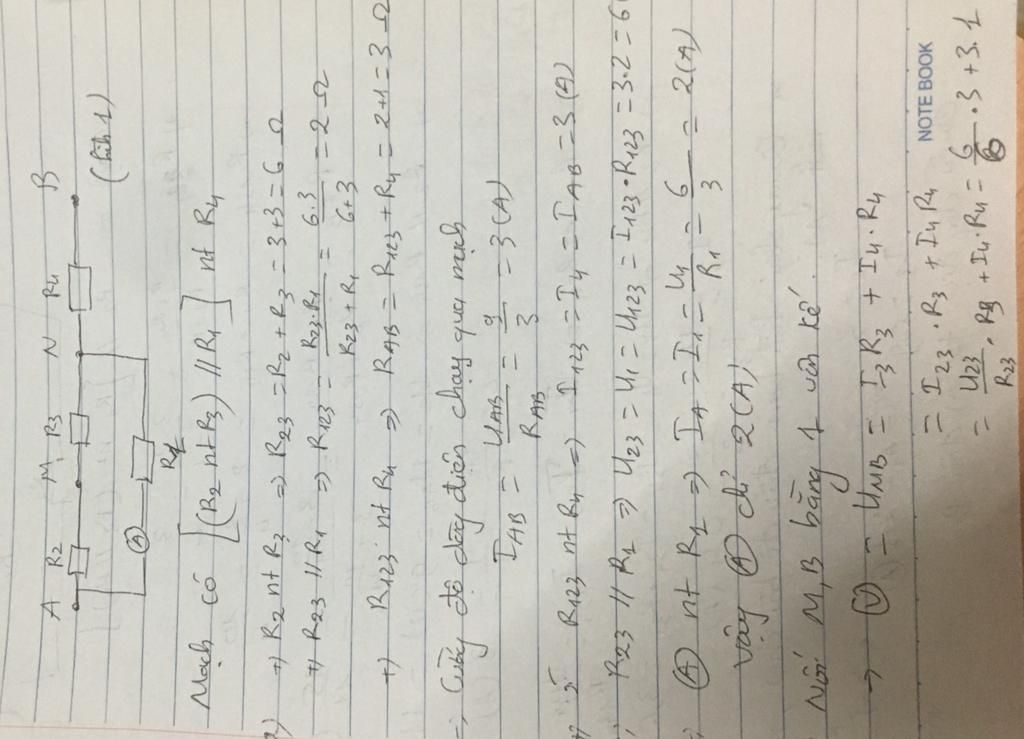 A R2 M R3 N R4 B
(A) R1 (hình 1)
Mạch có [(R2 nt R3) // R1] nt R4
2) +) R2 nt R3 => R23 = R2 + R3 = 3+3 = 6 Ω
+) R23 // R1 => R123 = R23.R1 / R23 + R1 = 6.3 / 6+3 = 2 Ω
+) R123 nt R4 => RAB = R123 + R4 = 2+1 = 3 Ω
=> Cường độ dòng điện chạy qua mạch
IAB = UAB / RAB = 9 / 3 = 3 (A)
R123 nt R4 => I123 = I4 = IAB = 3 (A)
R23 // R1 => U23 = U1 = U123 = I123.R123 = 3.2 = 6
(A) nt R1 => IA = I1 = U1 / R1 = 6 / 3 = 2 (A)
Vậy (A) chỉ 2 (A)
Nối M, B bằng 1 vôn kế.
→ (V) = UMB = I3R3 + I4.R4
= I23.R3 + I4R4
= U23 / R23 . R3 + I4.R4 = 6 / 6 . 3 + 3.1
NOTE BOOK